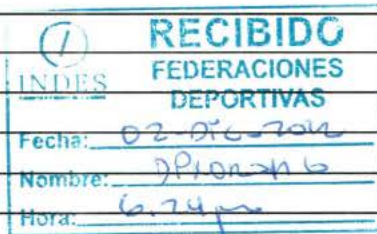 RECIBIDO
INDES
FEDERACIONES
DEPORTIVAS
Fecha: 02-Dic-2012
Nombre:
Hora: 6.24 pm